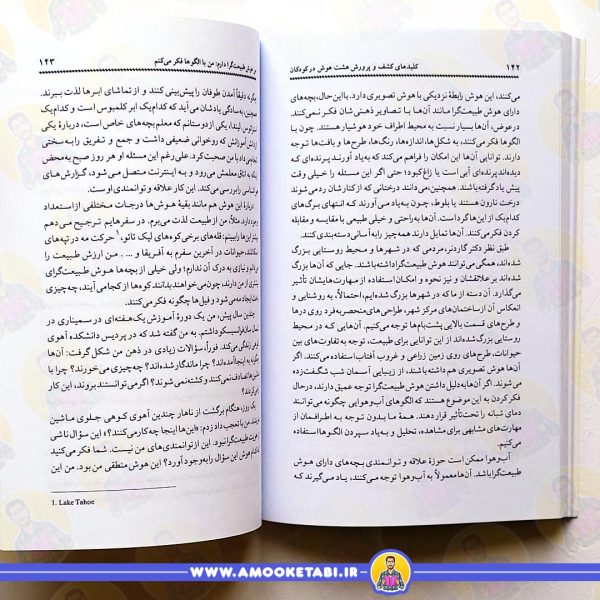 ۱۴۲ کلیدهای کشف و پرورش هشت هوش در کودکان
می‌کنند، این هوش رابطهٔ نزدیکی با هوش تصویری دارد. با این‌حال، بچه‌های
دارای هوش طبیعت‌گرا مانند آن‌ها با تصاویر ذهنی‌شان فکر نمی‌کنند.
در عوض، آن‌ها بسیار نسبت به محیط اطراف خود هوشیار هستند. چون با
الگوها فکر می‌کنند، به شکل‌ها، اندازه‌ها، رنگ‌ها، طرح‌ها و بافت‌ها توجه
دارند. توانایی آن‌ها این امکان را فراهم می‌کند که به یاد آورند پرنده‌ای که
دیده‌اند پرنده‌ای آبی است یا زاغ کبود؛ حتی اگر این مسئله را خیلی وقت
پیش یاد گرفته باشند. همچنین، می‌دانند درختانی که از کنارشان رد می‌شوند
درخت نارون هستند یا بلوط، چون به‌یاد می‌آورند که انتهای برگ‌های
کدام‌یک از این‌ها گرد است. آن‌ها به راحتی و خیلی طبیعی با مقایسه و مقابله
کردن فکر می‌کنند. آن‌ها تمایل دارند همه‌چیز را به آسانی دسته‌بندی کنند.
طبق نظر دکتر گاردنر، مردمی که در شهرها و محیط روستایی بزرگ
شده‌اند، همگی می‌توانند هوش طبیعت‌گرا داشته باشند. جایی که آن‌ها بزرگ
شده‌اند بر علاقشان و نیز نحوه و امکان استفاده از مهارت‌هایشان تأثیر
می‌گذارد. آن دسته از ما که در شهرها بزرگ شده‌ایم، احتمالاً، به روشنایی و
انعکاس آن از ساختمان‌های مرکز شهر، طراحی‌های منحصر به فرد روی درها
و طرح‌های قسمت بالایی پشت‌بام‌ها توجه می‌کنیم. آن‌هایی که در محیط
روستایی بزرگ شده‌اند از این توانایی برای طبیعت، توجه به تفاوت‌های بین
حیوانات، طرح‌های روی زمین زراعی و غروب آفتاب استفاده می‌کنند. اگر
آن‌ها هوش تصویری هم داشته باشند، از زیبایی آسمان شب شگفت‌زده
می‌شوند. اگر آن‌ها به دلیل داشتن هوش طبیعت‌گرا توجه عمیق دارند، درحال
فکر کردن به این موضوع هستند که الگوهای آب‌وهوایی چگونه می‌توانند
دمای شبانه را تحت‌تأثیر قرار دهند. همهٔ ما بدون توجه به اطرافمان از
مهارت‌های مشابهی برای مشاهده، تحلیل و به‌یاد سپردن الگوها استفاده
می‌کنیم.
آب‌وهوا ممکن است حوزهٔ علاقه و توانمندی بچه‌های دارای هوش
طبیعت‌گرا باشد. آن‌ها معمولاً به آب‌وهوا توجه می‌کنند، یاد می‌گیرند که
هوش طبیعت‌گرا دارم: من با الگوها فکر می‌کنم ۱۴۳
چگونه دقیقاً آمدن طوفان را پیش‌بینی کنند و از تماشای ابرها لذت ببرند.
همچنین، به‌سادگی یادشان می‌آید که کدام‌یک ابر کلمبوس است و کدام‌یک
لیندا، یکی از دوستانم که معلم بچه‌های خاص است، دربارهٔ یکی
دانش‌آموزانش که روخوانی ضعیفی داشت و جمع و تفریق را به‌سختی
انجام می‌داد با من صحبت کرد. علی‌رغم این مسئله او هر روز صبح به‌محض
به اتاق معلمش می‌رود و به اینترنت متصل می‌شود، گزارش‌های
را بررسی کند. این کار علاقه و توانمندی او است.
دربارهٔ این هوش هم مانند بقیهٔ هوش‌ها درجات مختلفی از استعداد
وجود دارد. مثلاً، من از طبیعت لذت می‌برم. در سفرهایم ترجیح می‌دهم
این‌ها را ببینم: قله‌های برفی کوه‌های لیک تائو،۱ حرکت مه در تپه‌های
حیوانات در آخرین سفرم به آفریقا و ... . من ارزش طبیعت را
می‌دانم و نیازی به درک آن ندارم؛ ولی خیلی از بچه‌ها هوش طبیعت‌گرای
بیشتری از من دارند، چون می‌خواهند بدانند کوه‌ها از کجا می‌آیند، چه‌چیزی
باعث ایجاد مه می‌شود و فیل‌ها چگونه فکر می‌کنند.
چندین سال پیش، من یک دورهٔ آموزش یک‌هفته‌ای در سمیناری در
شمال سانفرانسیسکو داشتم. به من گفته شد که در پردیس دانشکده آهوی
کوهی زندگی می‌کند. فوراً، سؤالات زیادی در ذهن من شکل گرفت: آن‌ها
چگونه به اینجا آمده‌اند؟ چرا ماندگار شده‌اند؟ چه‌چیزی می‌خورند؟ چرا با
ماشین‌ها تصادف نمی‌کنند و کشته نمی‌شوند؟ اگر می‌توانستند بروند، این کار
را می‌کردند؟
یک روز، هنگام برگشت از ناهار چندین آهوی کوهی جلوی ماشین
بودند. من با تعجب داد زدم: «این‌ها اینجا چه‌کار می‌کنند؟» این سؤال ناشی
از هویت طبیعت‌گرا نبود. این از توانمندی‌های من نیست. شما فکر می‌کنید
کدام هوش این سؤال را به‌وجود آورد؟ این هوش منطقی من بود. من این
1. Lake Tahoe
WWW.AMOOKETABI.IR